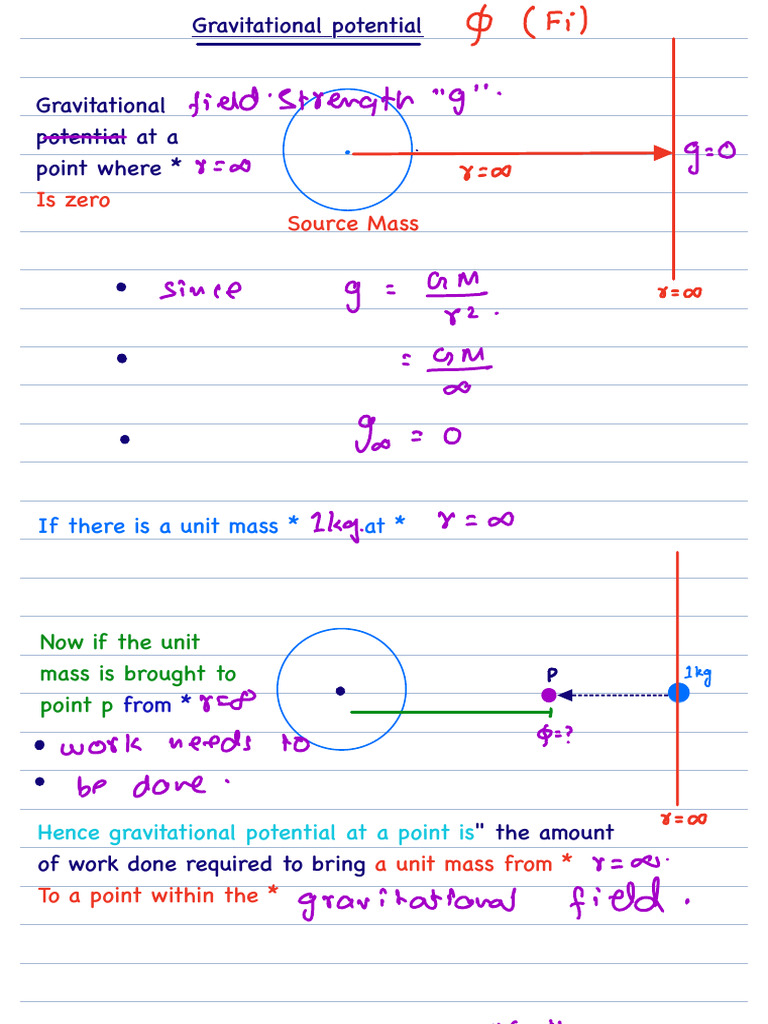 Gravitational potential ϕ (Fi)
Gravitational field strength "g".
potential at a
point where * r=∞
Is zero
g=0
r=∞
Source Mass
r=∞
• since g = GM/r².
• = GM/∞
• g∞ = 0
If there is a unit mass * 1kg. at * r=∞
Now if the unit
mass is brought to
point p from * r=∞
P
1kg
ϕ=?
• work needs to
• be done.
r=∞
Hence gravitational potential at a point is" the amount
of work done required to bring a unit mass from * r=∞.
To a point within the * gravitational field.